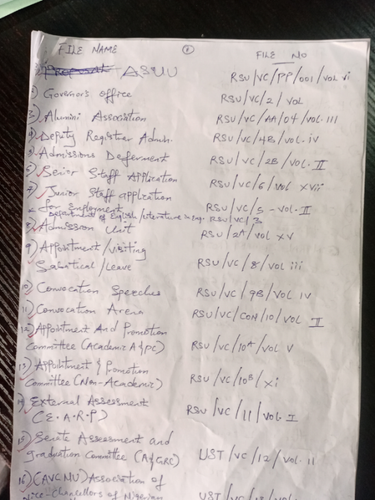 FILE NAME FILE NO
ASUU RSU/VC/PP/001/VOL vi
Governor's office RSU/VC/2/VOL
3) Alumini Association RSU/VC/AA/04/VOL.III
4) Deputy Registrar Adum. RSU/VC/4B/VOL.iv
5) Admissions Deferment RSU/VC/2B/VOL.II
6) Senior Staff Application RSU/VC/6/VOL XVii
7) Junior Staff application
for Employment RSU/VC/5-VOL-II
Department of English/Literature in Eng. RSU/VC/
8) Admission Unit RSU/2A/VOL XV
9) Appointment/visiting
Sabatical/Leave RSU/VC/8/VOL iii
10) Convocation Speeches RSU/VC/9B/VOL IV
11) Convocation Arena RSU/VC/CON/10/VOL I
12) Appointment And Promotion
Committee (Academic A&PC) RSU/VC/10A/VOL V
13) Appointment & Promotion
Committee (Non-Academic) RSU/VC/10B/Xi
14) External Assessment
(E.A.R.P) RSU/VC/11/VOL.I
15) Senate Assessment and
graduation Committee (A&GRC) UST/VC/12/VOL.11
16) (AVCNU) Association of
Vice-Chancellors of Nigerian UST/VC